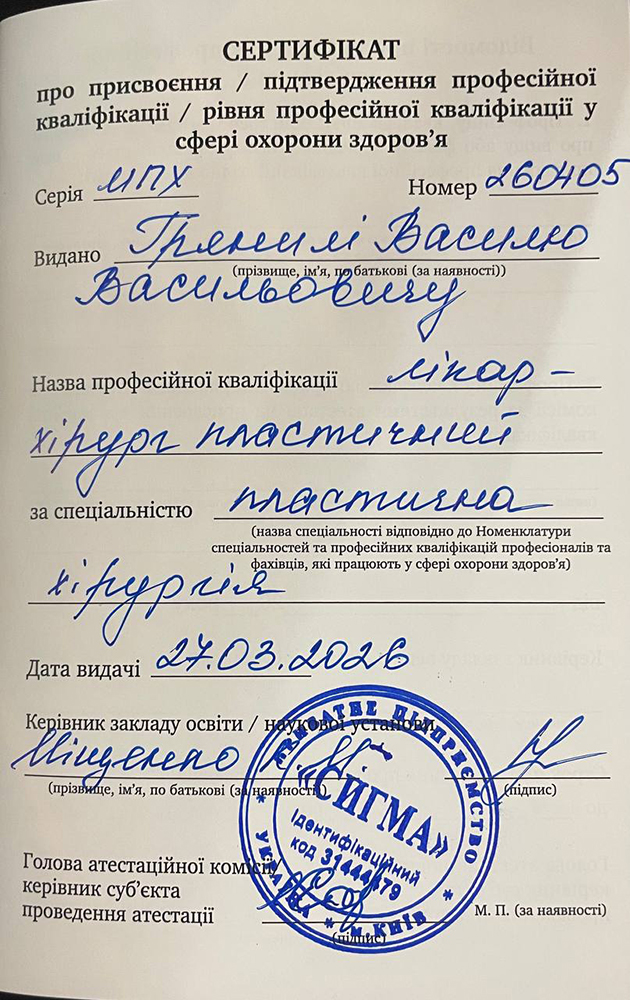 СЕРТИФІКАТ
про присвоєння / підтвердження професійної
кваліфікації / рівня професійної кваліфікації у
сфері охорони здоров’я
Серія МПХ Номер 260405
Видано Грянилі Василю
(прізвище, ім’я, по батькові (за наявності))
Васильовичу
Назва професійної кваліфікації лікар –
хірург пластичний
за спеціальністю пластична
(назва спеціальності відповідно до Номенклатури
спеціальностей та професійних кваліфікацій професіоналів та
фахівців, які працюють у сфері охорони здоров’я)
хірургія
Дата видачі 27.03.2026
Керівник закладу освіти / наукової установи
Міщенко
(прізвище, ім’я, по батькові (за наявності))
(підпис)
ПРИВАТНЕ ПІДПРИЄМСТВО
«СИГМА»
Ідентифікаційний
код 31444479
* УКРАЇНА * м.КИЇВ *
Голова атестаційної комісії/
керівник суб’єкта
проведення атестації
М. П. (за наявності)
(підпис)